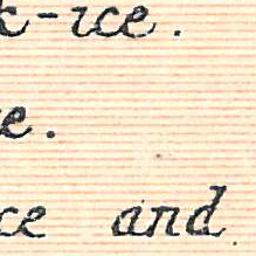 k-ice.
e.
ce and